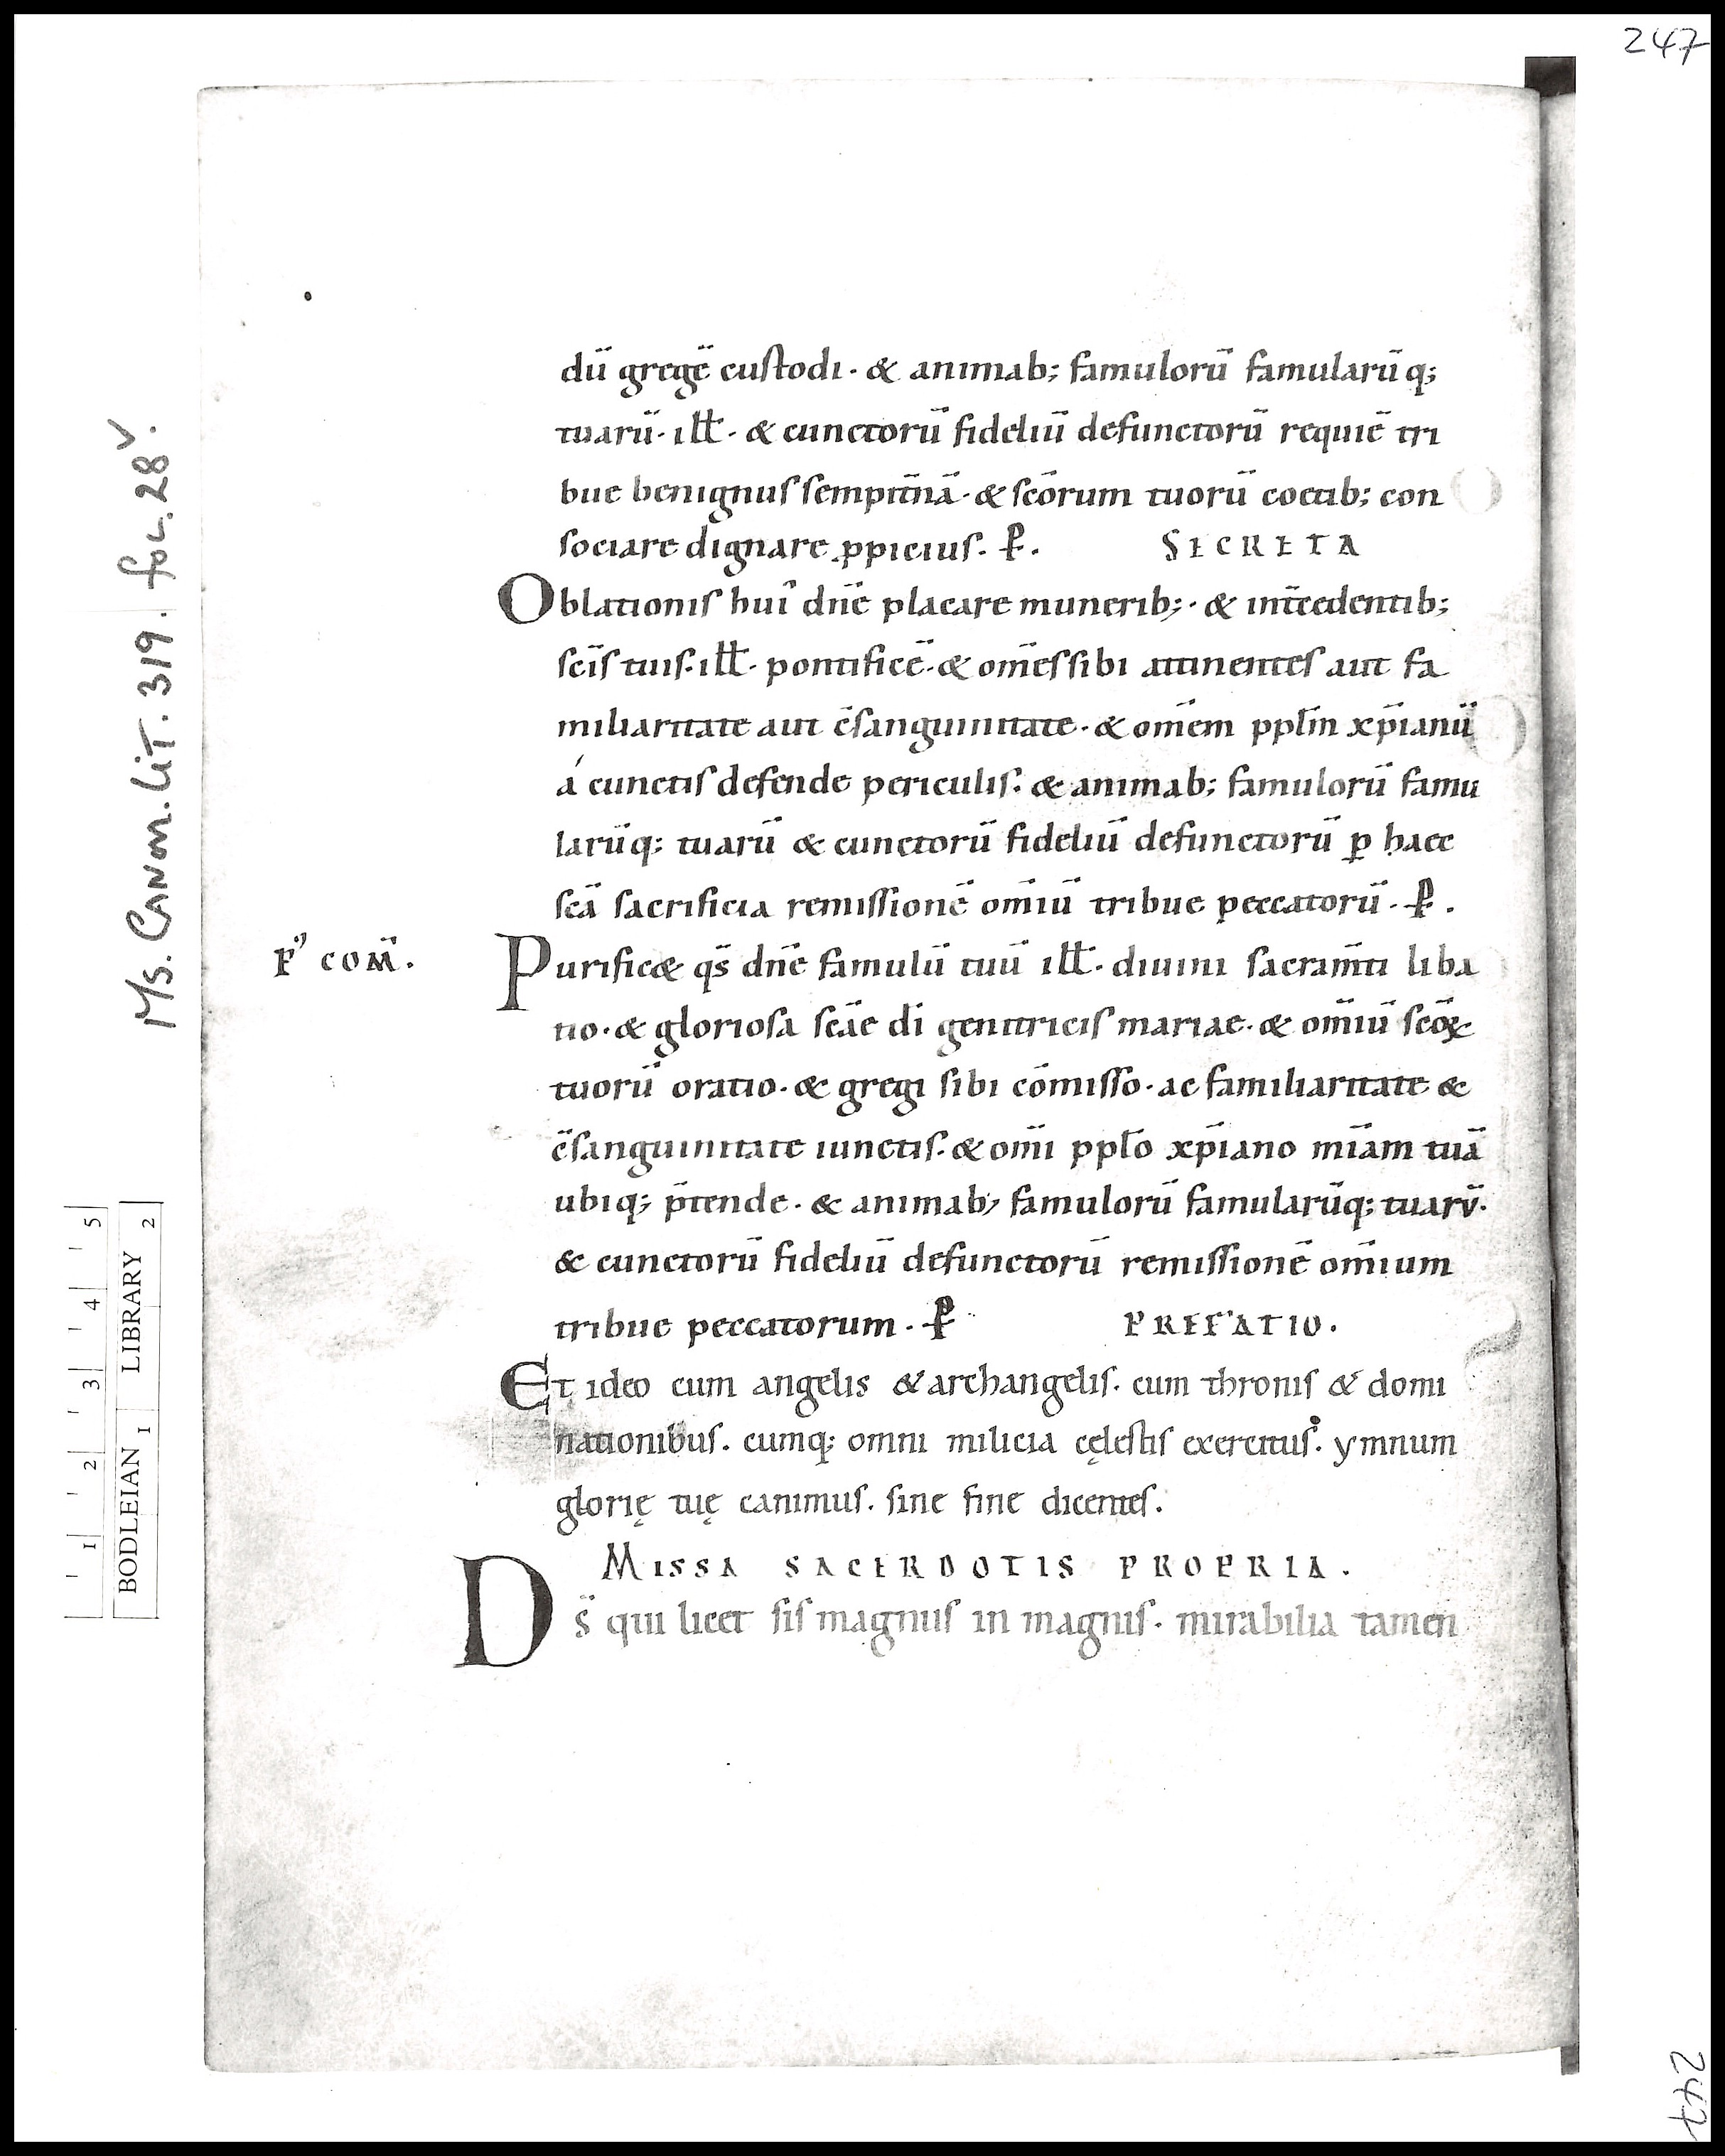 247
dū gregē custodi · & animab; famulorū famularūq;
tuarū · ill̅ · & cunctorū fideliū defunctorū requiē tri
bue benignus sempit̅nā · & scōrum tuorū coetib; con
sociare dignare ꝓpicius · P̵ . SECRETA
Oblationis hui᾽ dn̅e placare munerib; · & int̅cedentib;
sc̅is tuis · ill̅ · pontificē · & om̅es sibi attinentes aut fa
miliaritate aut c̅sanguinitate · & om̅em ppl̅m xp̅ianū
á cunctis defende periculis · & animab; famulorū famu
larūq; tuarū & cunctorū fideliū defunctorū ꝑ haec
sc̅a sacrificia remissionē om̅iū tribue peccatorū · P̵ .
P᾽ COM̅.
Purific& qs̅ dn̅e famulū tuū ill̅ · diuini sacram̅ti liba
tio · & gloriosa sc̅ae di̅ genitricis mariae · & om̅iū sc̅oꝝ
tuorū oratio · & gregi sibi cōmisso · ac familiaritate &
c̅sanguinitate iunctis · & om̅i ppl̅o xp̅iano mi̅am tuā
ubiq; p̅tende · & animab; famulorū famularūq; tuarv̅ ·
& cunctorū fideliū defunctorū remissionē om̅ium
tribue peccatorum · P̵ PREFATIO .
Et ideo cum angelis & archangelis . cum thronis & domi
nationibus . cumq; omni milicia cęlestis exercitus . ymnum
glorię tuę canimus . sine fine dicentes .
MISSA SACERDOTIS PROPRIA .
Ds̅ qui licet sis magnus in magnis · mirabilia tamen
Ms. CANON. LIT. 319. fol. 28v.
1 2 3 4 5
BODLEIAN 1 LIBRARY 2
247